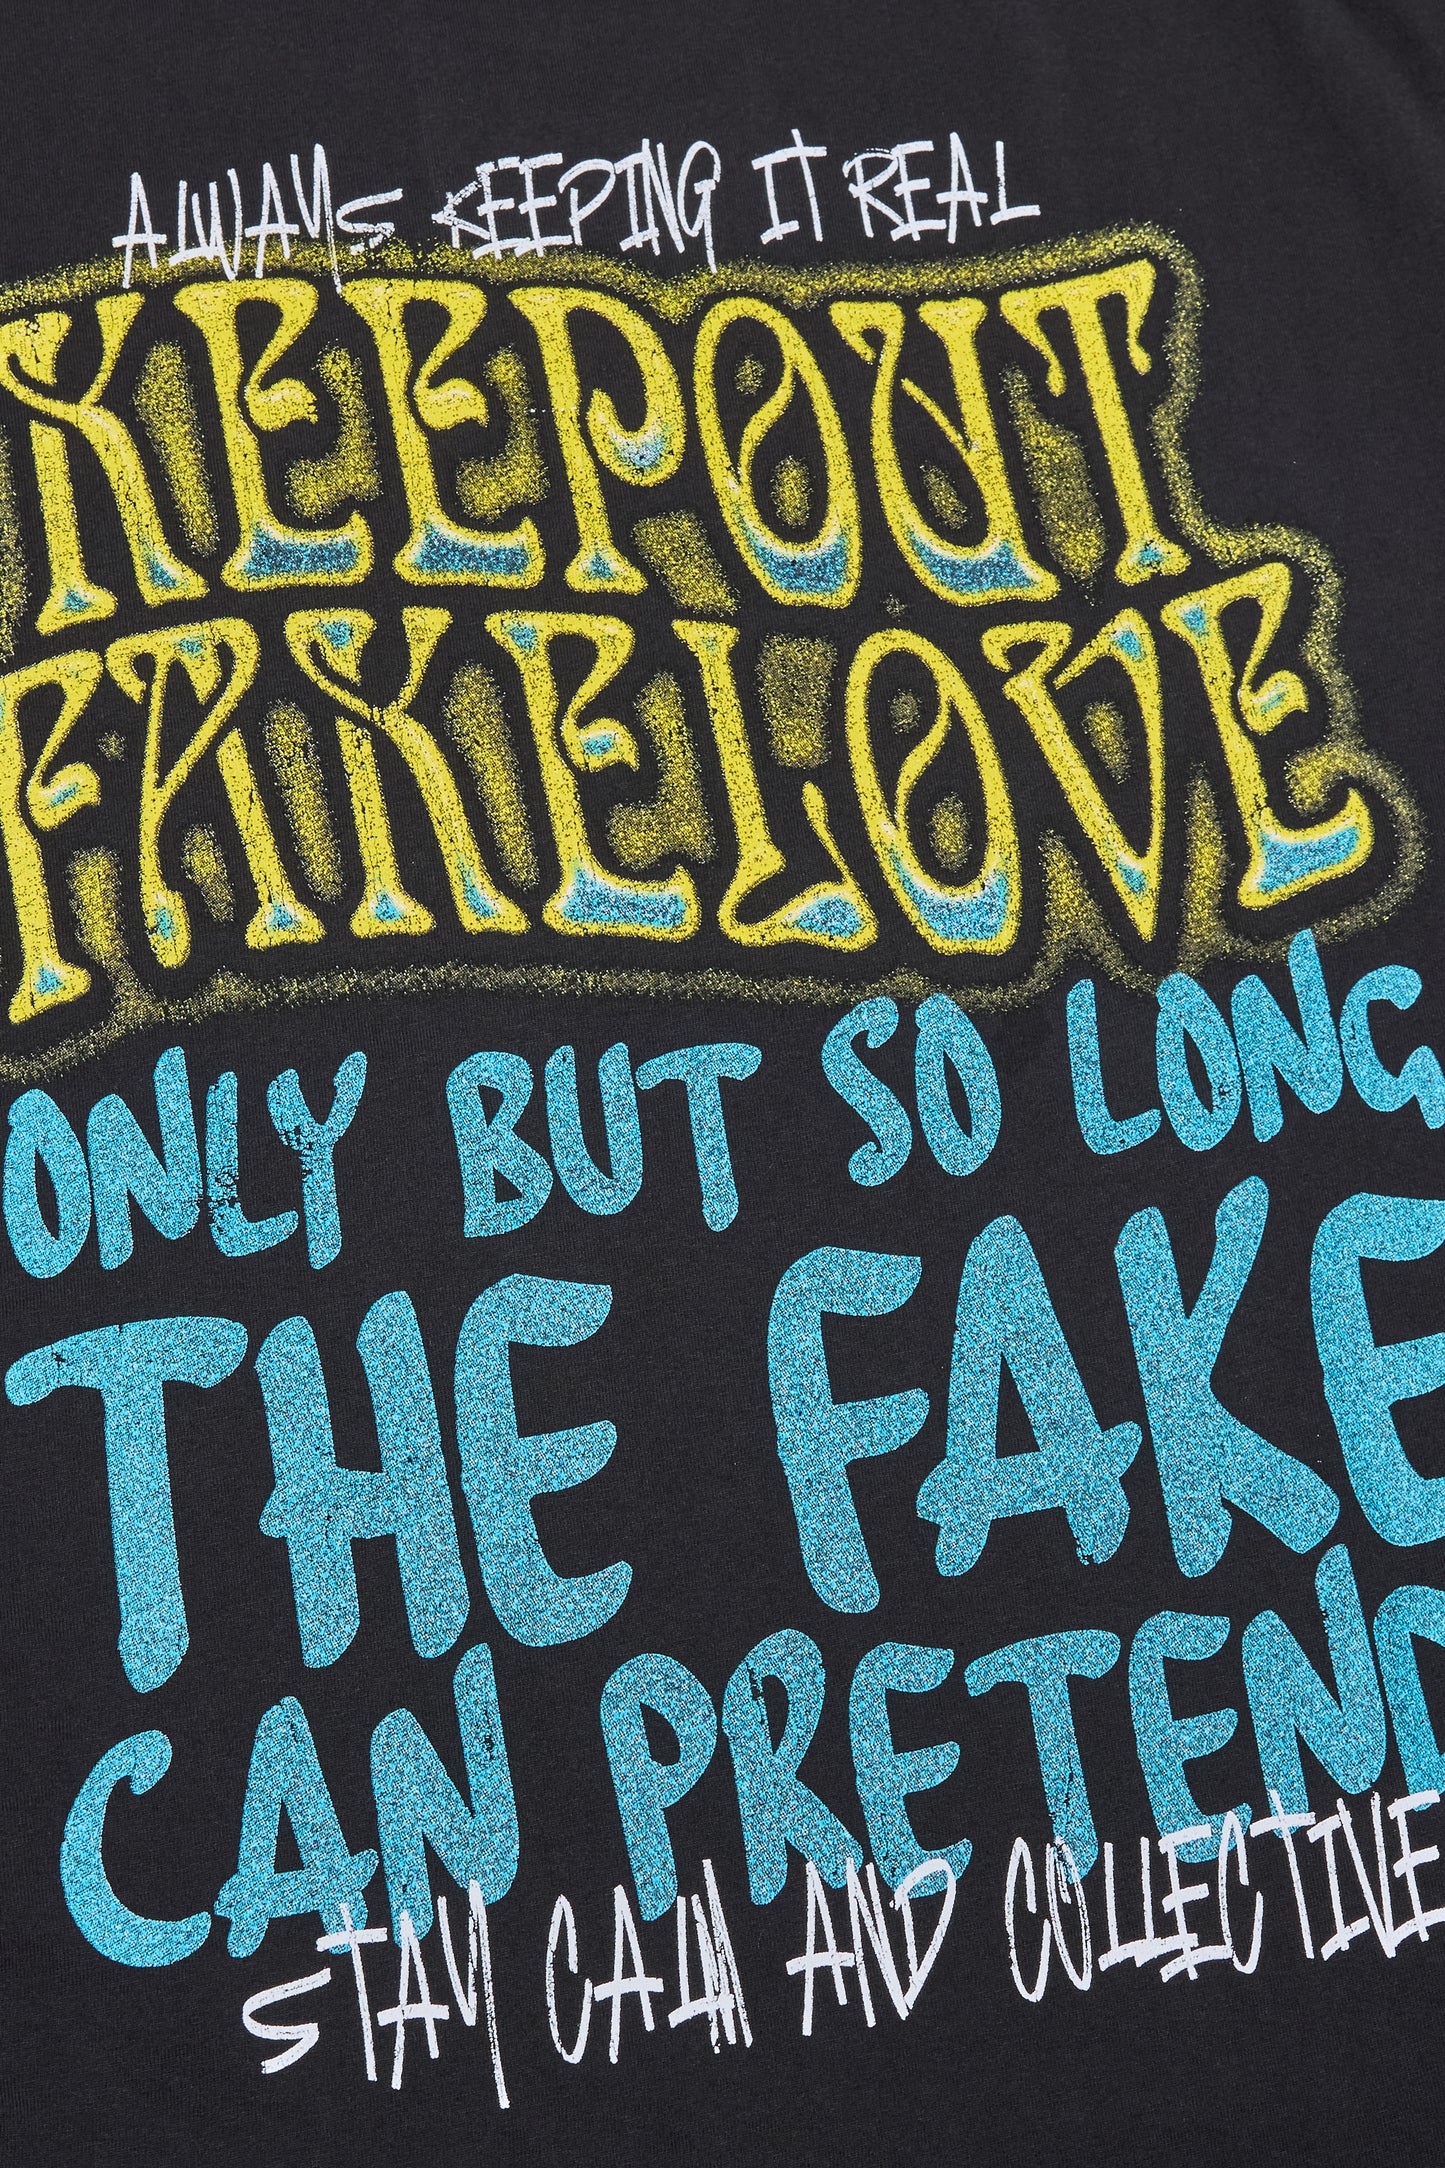 ALWAYS KEEPING IT REAL
KEEPOUT
FAKELOVE
ONLY BUT SO LONG
THE FAKE
CAN PRETEND
STAY CALM AND COLLECTIVE